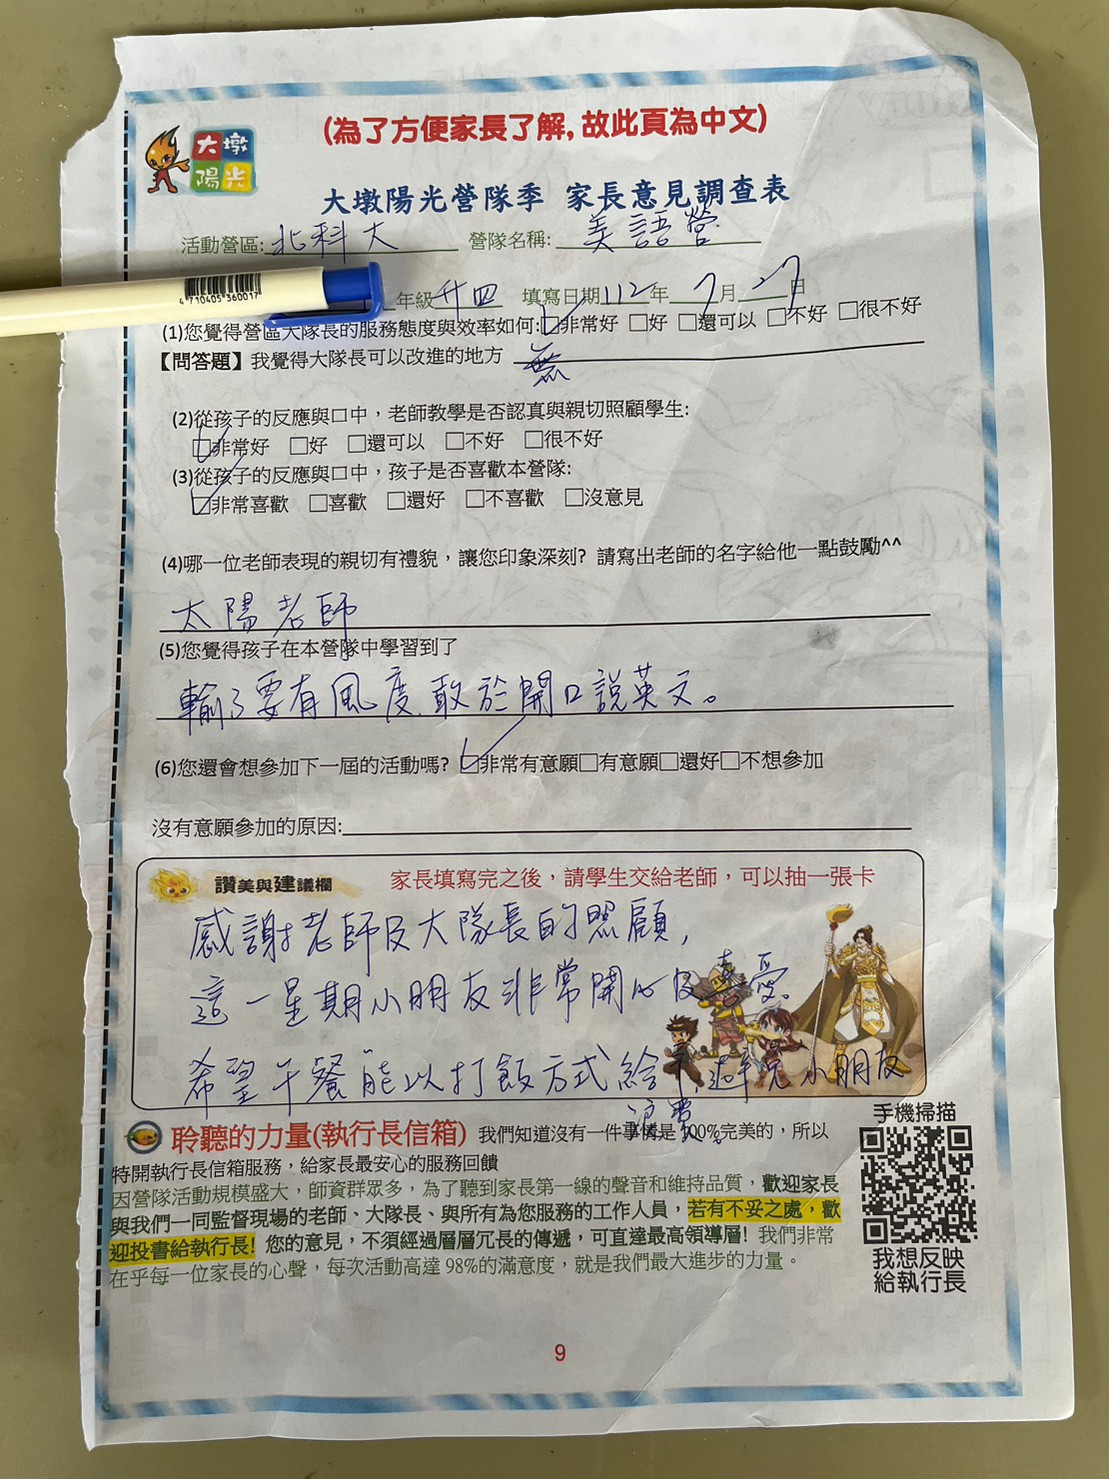 (為了方便家長了解,故此頁為中文)
大墩
陽光
大墩陽光營隊季 家長意見調查表
活動營區:北科大 營隊名稱:美語營
4 710405 360017
年級升四 填寫日期112年7月27日
(1)您覺得營區大隊長的服務態度與效率如何:☑非常好 □好 □還可以 □不好 □很不好
【問答題】我覺得大隊長可以改進的地方 無
(2)從孩子的反應與口中,老師教學是否認真與親切照顧學生:
☑非常好 □好 □還可以 □不好 □很不好
(3)從孩子的反應與口中,孩子是否喜歡本營隊:
☑非常喜歡 □喜歡 □還好 □不喜歡 □沒意見
(4)哪一位老師表現的親切有禮貌,讓您印象深刻? 請寫出老師的名字給他一點鼓勵^^
太陽老師
(5)您覺得孩子在本營隊中學習到了
輸了要有風度 敢於開口說英文。
(6)您還會想參加下一屆的活動嗎? ☑非常有意願□有意願□還好□不想參加
沒有意願參加的原因:
讚美與建議欄 家長填寫完之後,請學生交給老師,可以抽一張卡
感謝老師及大隊長的照顧,
這一星期小朋友非常開心及喜愛。
希望午餐能以打飯方式給予,避免小朋友
浪費。
聆聽的力量(執行長信箱) 我們知道沒有一件事情是 100%完美的,所以
特開執行長信箱服務,給家長最安心的服務回饋
因營隊活動規模盛大,師資群眾多,為了聽到家長第一線的聲音和維持品質,歡迎家長
與我們一同監督現場的老師、大隊長、與所有為您服務的工作人員,若有不妥之處,歡
迎投書給執行長! 您的意見,不須經過層層冗長的傳遞,可直達最高領導層! 我們非常
在乎每一位家長的心聲,每次活動高達 98%的滿意度,就是我們最大進步的力量。
手機掃描
我想反映
給執行長
9